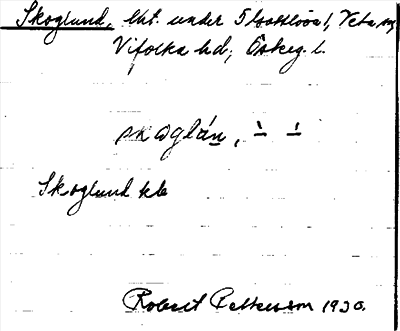 Skoglund, lht. under Slottslöva?, Veta sn
Vifolka hd; Österg. l.
skoglán, ` ´
Skoglund kb
Robert Pettersson 1930.